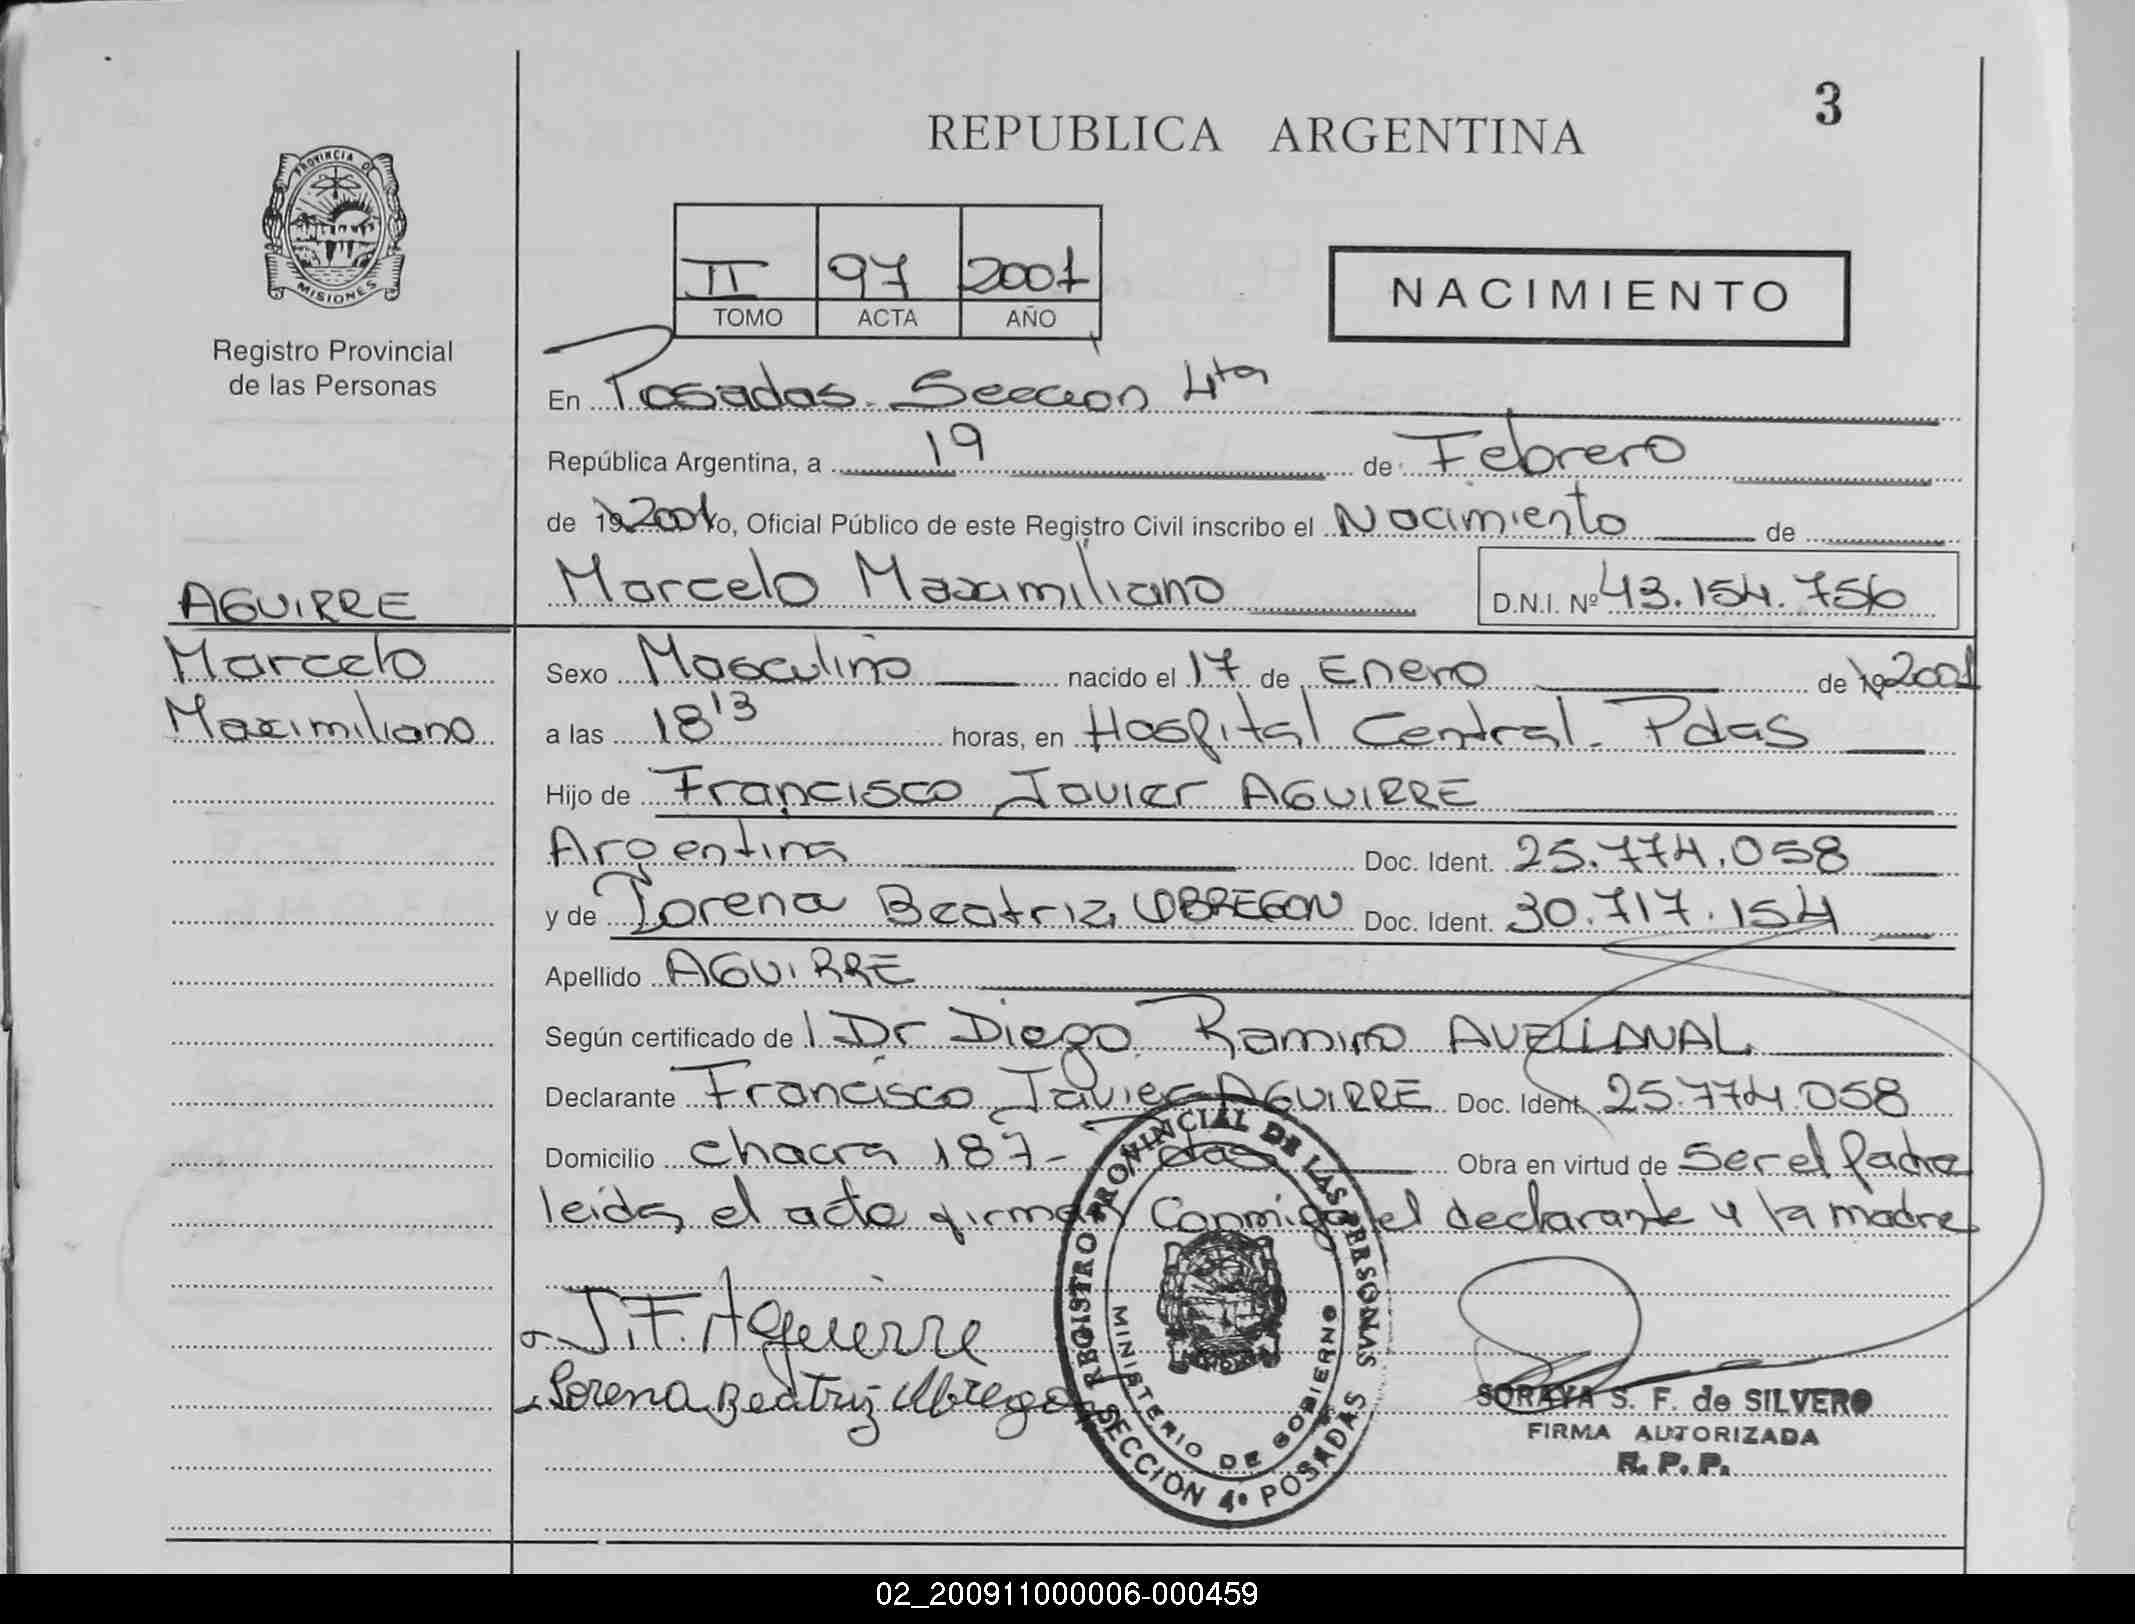 3
REPUBLICA ARGENTINA
PROVINCIA DE
MISIONES
Registro Provincial
de las Personas
II 97 2001
TOMO ACTA AÑO
NACIMIENTO
En Posadas - Seccion 4ta
República Argentina, a 19 de Febrero
de 19 2001 Yo, Oficial Público de este Registro Civil inscribo el Nacimiento de
Marcelo Maximiliano D.N.I. Nº 43.154.756
AGUIRRE
Marcelo
Maximiliano
Sexo Masculino nacido el 17 de Enero de 19 2001
a las 18 13 horas, en Hospital Central - Pdas
Hijo de Francisco Javier AGUIRRE
Argentina Doc. Ident. 25.774.058
y de Lorena Beatriz OBREGON Doc. Ident. 30.717.154
Apellido AGUIRRE
Según certificado de l Dr Diego Ramiro AVELLANAL
Declarante Francisco Javier AGUIRRE Doc. Ident. 25.774.058
Domicilio chacra 187 - Pdas Obra en virtud de ser el Padre
leida el acta firman conmigo el declarante y la madre
J.F. Aguirre
Lorena Beatriz Obregon
REGISTRO PROVINCIAL DE LAS PERSONAS
MINISTERIO DE GOBIERNO
SECCIÓN 4ª POSADAS
SORAYA S. F. de SILVERO
FIRMA AUTORIZADA
R. P. P.
02_200911000006-000459